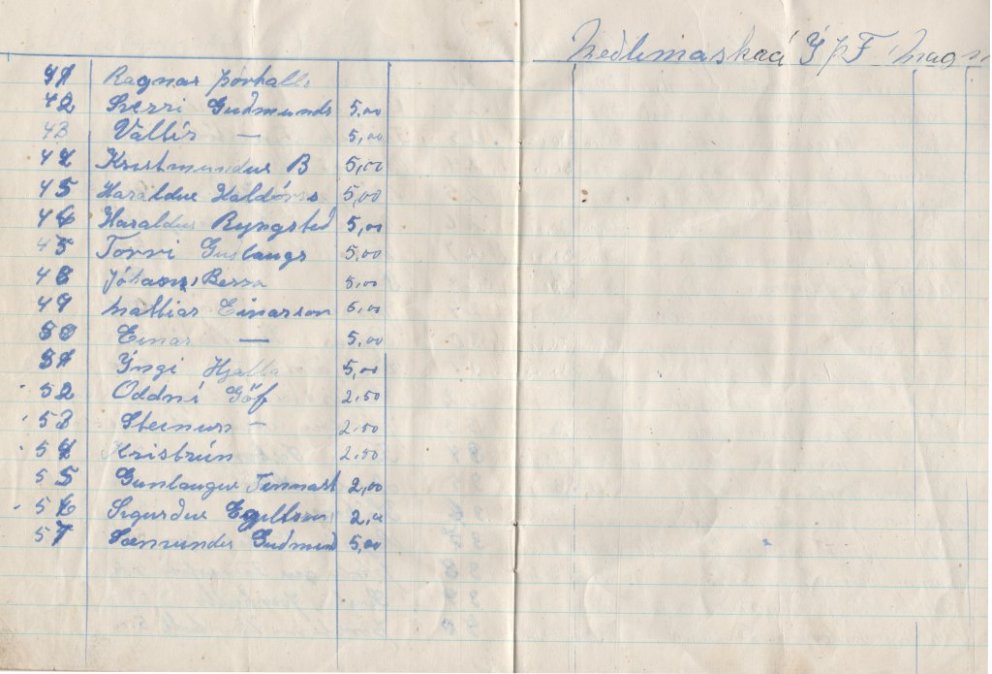 41 Ragnar Þórhalls
42 Sverri Guðmunds 5,00
43 Valtír — 5,00
44 Kristmundur B 5,00
45 Haraldur Haldórs 5,00
46 Haraldur Ryngsted 5,00
45 Torvi Guðlaugs 5,00
48 Jóhann Berra 5,00
49 Mattias Einarson 5,00
50 Einar — 5,00
51 Yngi Hjalta 5,00
52 Oddní 2.50
53 Steinun — 2.50
54 Kristrún 2.50
55 Gunlaugur 2,00
56 Sigurður 2,00
57 Sæmundur Guðmund 5,00
Í Þ F